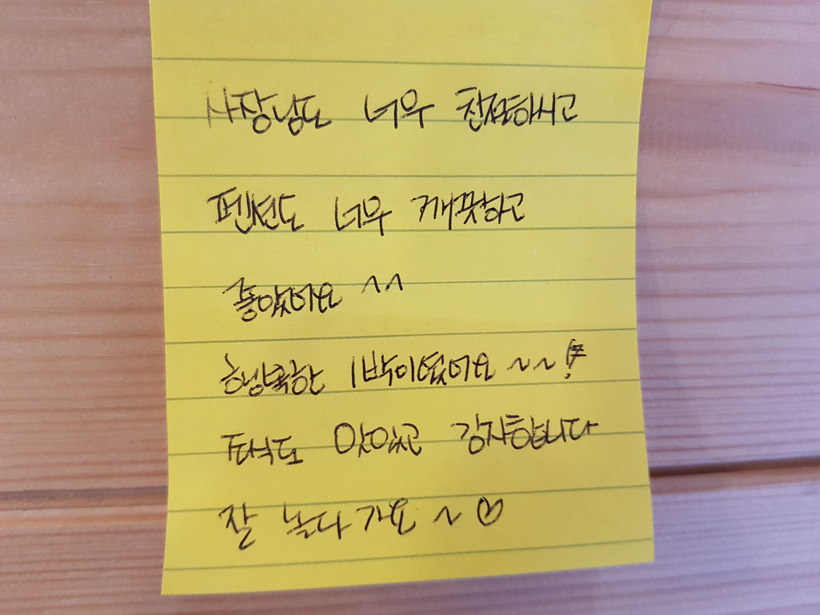 사장님도 너무 친절하시고
펜션도 너무 깨끗하고
좋았어요 ^^
행복한 1박이였어요 ~~!
도 맛있고 감사합니다
잘 놀다 가요 ~ ♡